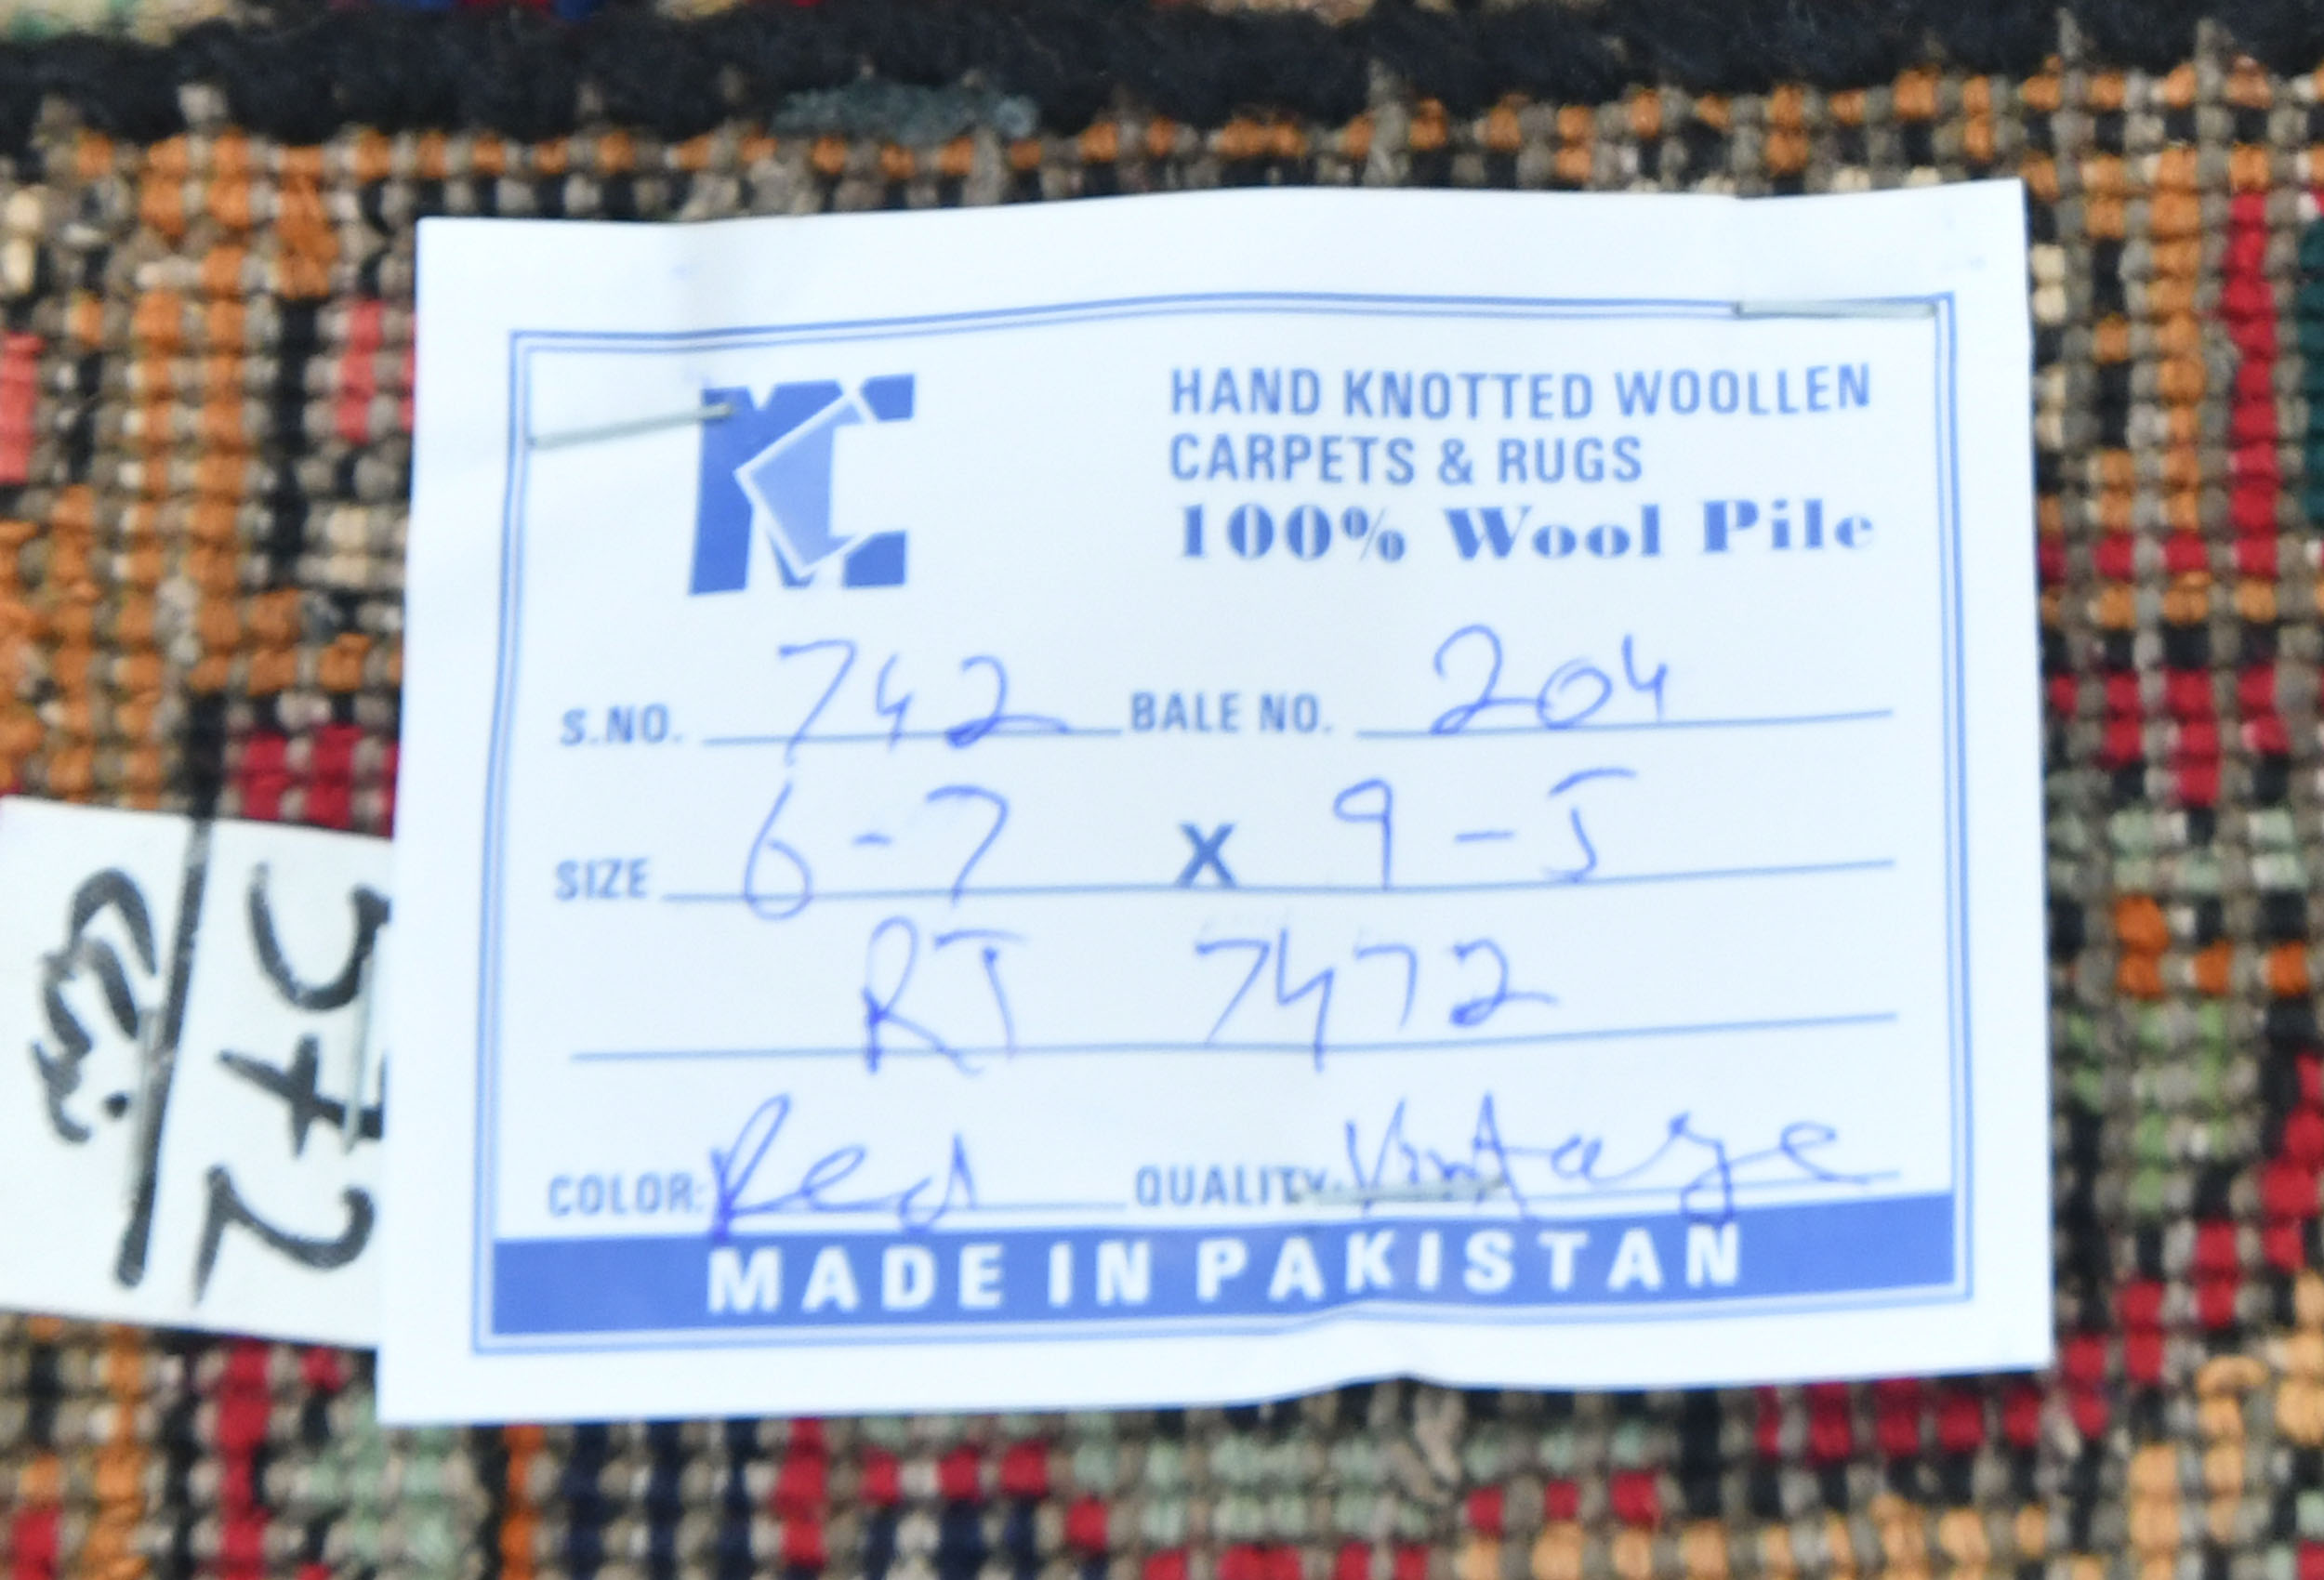 MC
HAND KNOTTED WOOLLEN
CARPETS & RUGS
100% Wool Pile
S.NO. 742 BALE NO. 204
SIZE 6-7 X 9-5
RT 7472
COLOR: Red QUALITY: Vintage
MADE IN PAKISTAN